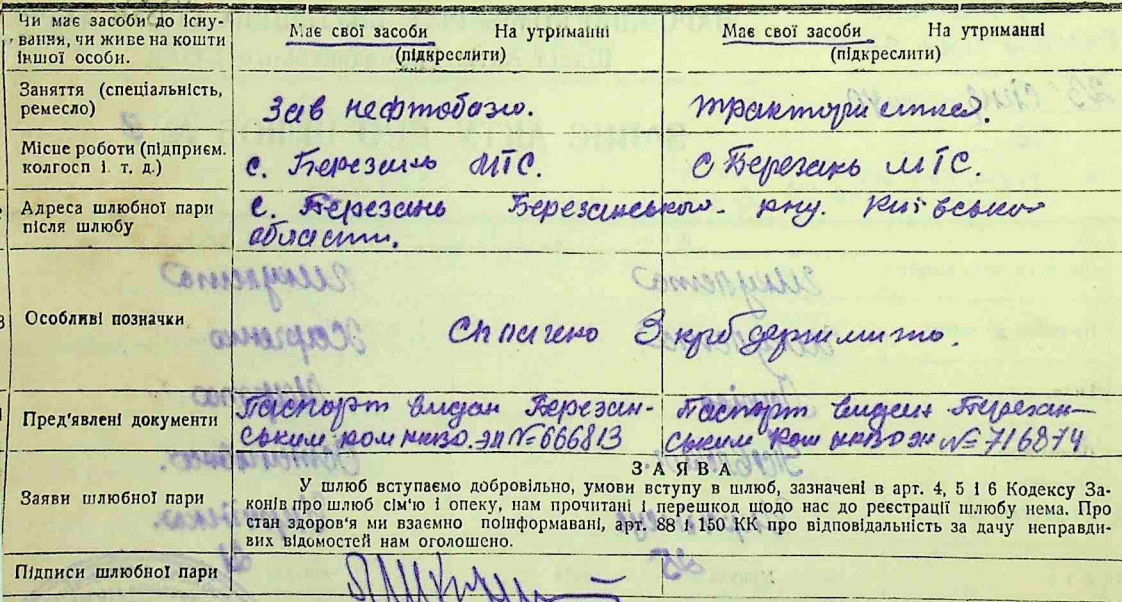 Чи має засоби до існу-
вання, чи живе на кошти
іншої особи.
Має свої засоби На утриманні
(підкреслити)
Має свої засоби На утриманні
(підкреслити)
Заняття (спеціальність,
ремесло)
Зав нефтобазою.
трактористка.
Місце роботи (підприєм.
колгосп і. т. д.)
с. Березань МТС.
с Березань МТС.
Адреса шлюбної пари
після шлюбу
с. Березань Березанського р-ну. Київської
области.
Особливі позначки
Сплачено 3 крб держ мито.
Пред'явлені документи
Паспорт видан Березан-
ським НКВД. № 666813
Паспорт видан Березан-
ським № 716874
Заяви шлюбної пари
ЗАЯВА
У шлюб вступаємо добровільно, умови вступу в шлюб, зазначені в арт. 4, 5 і 6 Кодексу За-
конів про шлюб сім'ю і опеку, нам прочитані і перешкод щодо нас до реєстрації шлюбу нема. Про
стан здоров'я ми взаємно поінформавані, арт. 88 і 150 КК про відповідальність за дачу неправди-
вих відомостей нам оголошено.
Підписи шлюбної пари